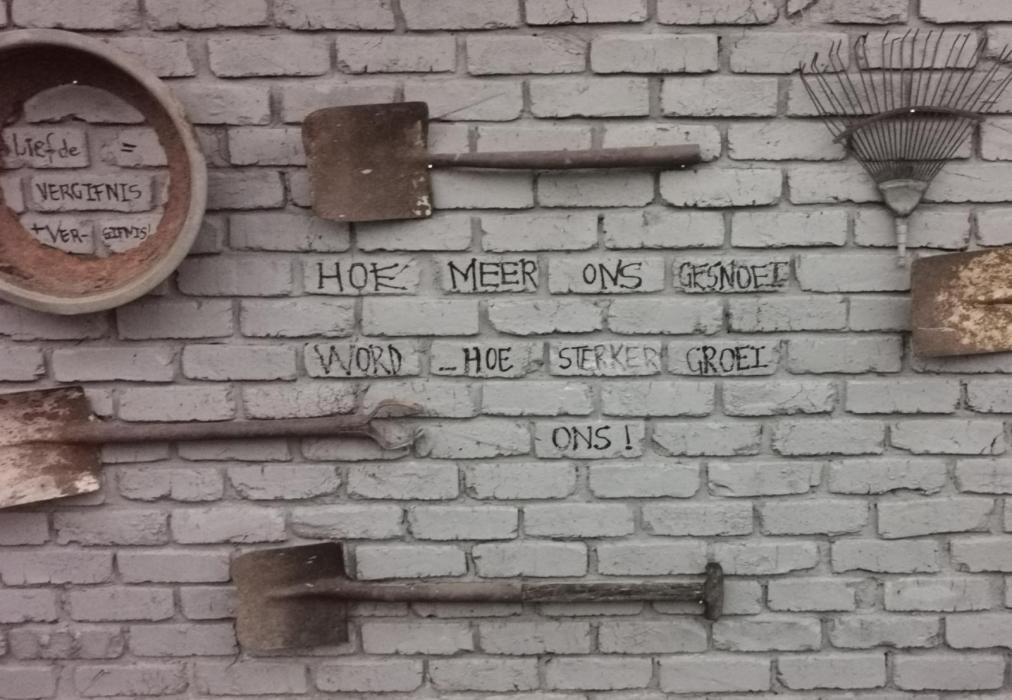 Liefde =
VERGIFNIS
+VER- GIFNIS!
HOE MEER ONS GESNOEI
WORD _HOE STERKER GROEI
ONS!